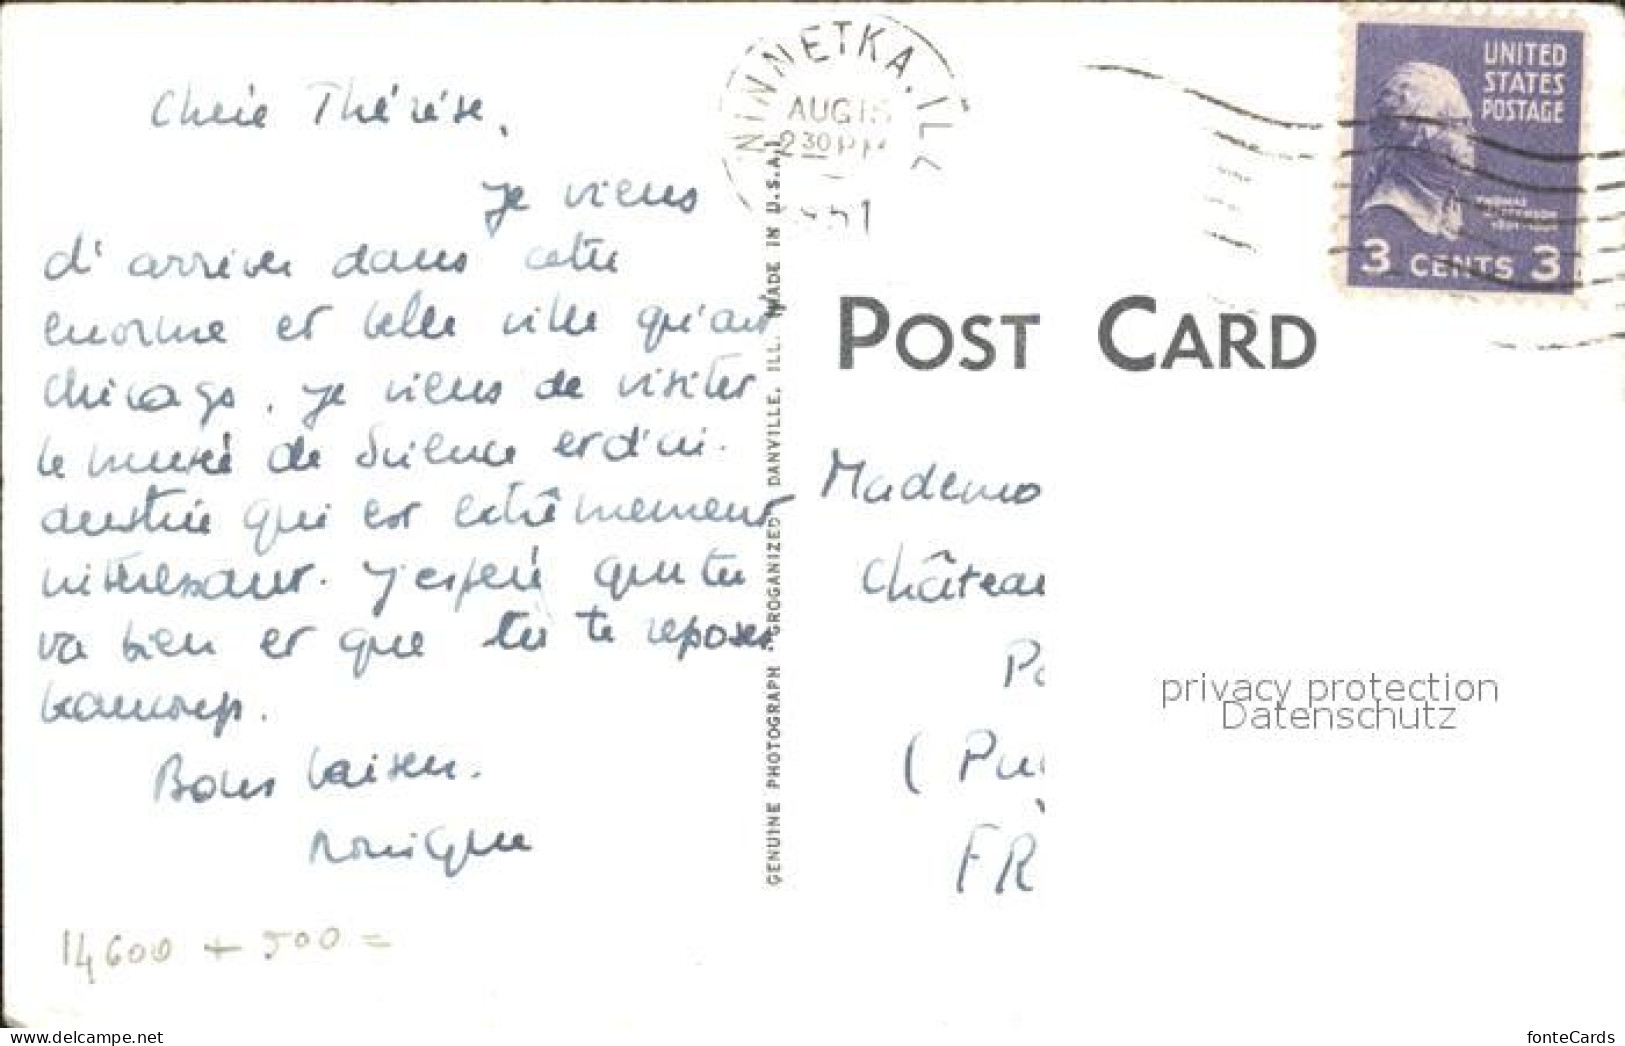 Chère Thérèse,
Je viens
d'arriver dans cette
enorme et belle ville qu'est
Chicago. Je viens de visiter
le musée de Science et d'in-
dustrie qui est extrêmement
intéressant. J'espère que tu
va bien et que tu te reposes
beaucoup.
Bons baisers.
Monique
14600 + 500 =
GENUINE PHOTOGRAPH - GROGANIZED DANVILLE, ILL. MADE IN U.S.A.
WINNETKA, ILL
AUG 15
2 30 PM
1951
UNITED
STATES
POSTAGE
THOMAS
JEFFERSON
3 CENTS 3
POST CARD
Mademo
Château
Po
(Pu
FR
privacy protection
Datenschutz
www.delcampe.net
fonteCards